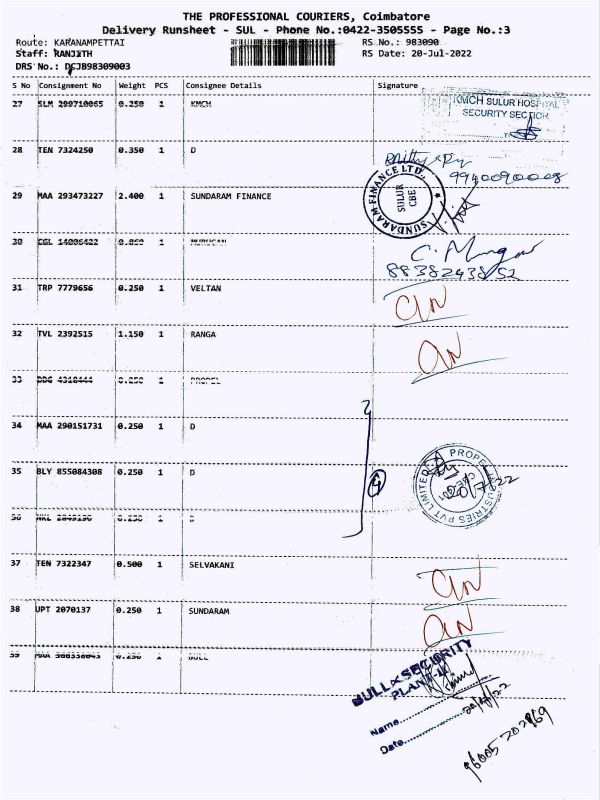 THE PROFESSIONAL COURIERS, Coimbatore
Delivery Runsheet - SUL - Phone No.:0422-3505555 - Page No.:3
Route: KARANAMPETTAI RS No.: 983090
Staff: RANJITH RS Date: 20-Jul-2022
DRS No.: DCJB98309003
S No Consignment No Weight PCS Consignee Details Signature
27 SLM 299710065 0.250 1 KMCH
KMCH SULUR HOSPITAL
SECURITY SECTION
28 TEN 7324250 0.350 1 D
9940090008
29 MAA 293473227 2.400 1 SUNDARAM FINANCE
SUNDARAM FINANCE LTD.
SULUR
CBE
30 CGL 14006422 0.050 1 MURUGAN
C. Murugan
8838243852
31 TRP 7779656 0.250 1 VELTAN
32 TVL 2392515 1.150 1 RANGA
33 DDG 4318444 0.250 1 PROPEL
34 MAA 290151731 0.250 1 D
35 BLY 855084308 0.250 1 D
4
PROPEL INDUSTRIES PVT LIMITED
20/7/22
36 NKL 0.250 1 D
37 TEN 7322347 0.500 1 SELVAKANI
38 UPT 2070137 0.250 1 SUNDARAM
39 MAA 0.250 1 BULL
BULL SECURITY
PLANT-II
Name
Date